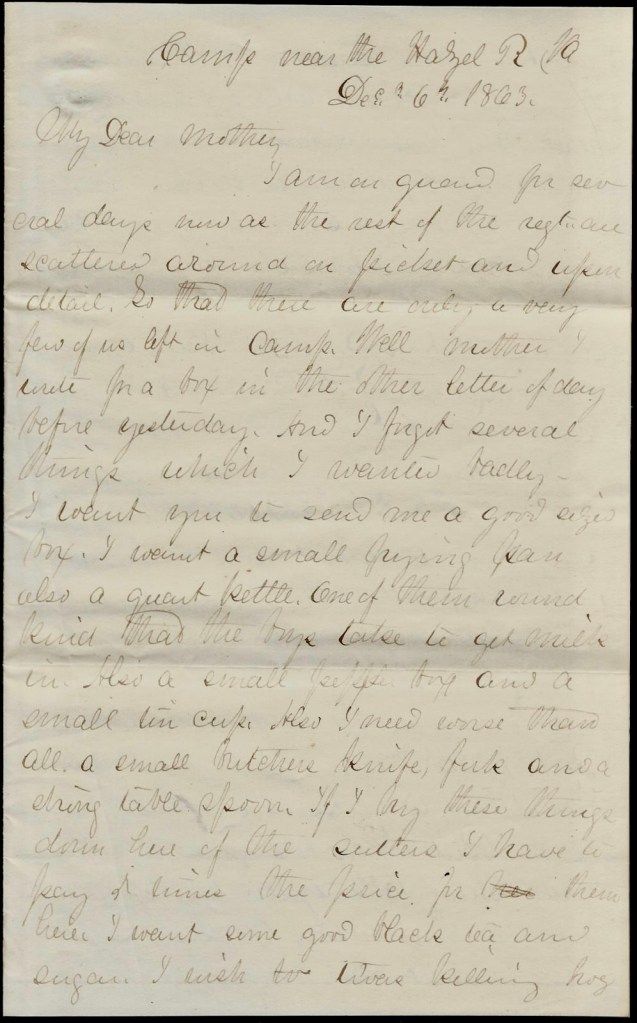 Camp near the Hazel R Va
Dec. 6th 1863.
My Dear Mother
I am on guard for sev
eral days now as the rest of the regt. are
scattered around on picket and upon
detail. So that there are only a very
few of us left in Camp. Well mother I
wrote for a box in the other letter of day
before yesterday. And I forgot several
things which I wanted badly -
I want you to send me a good sized
box. I want a small frying pan
also a quart kettle. One of them round
kind that the boys take to get milk
in. Also a small pepper box and a
small tin cup. Also I need worse than
all. a small butchers knife, fork and a
strong table spoon. If I buy these things
down here of the sutlers I have to
pay times the price for them
here I want some good black tea and
sugar. I wish to twas killing hog